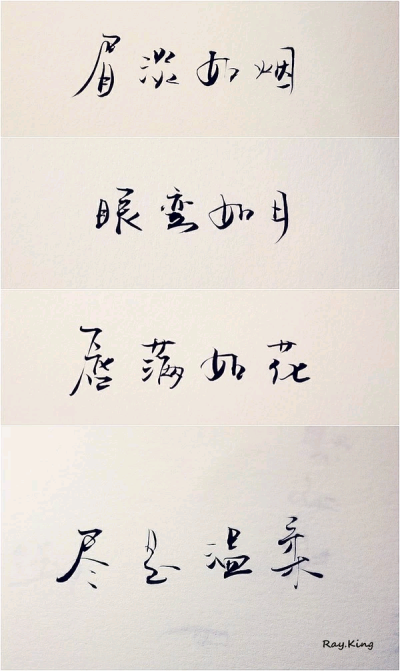 眉淡如烟
眼弯如月
唇满如花
尽是温柔
Ray.King